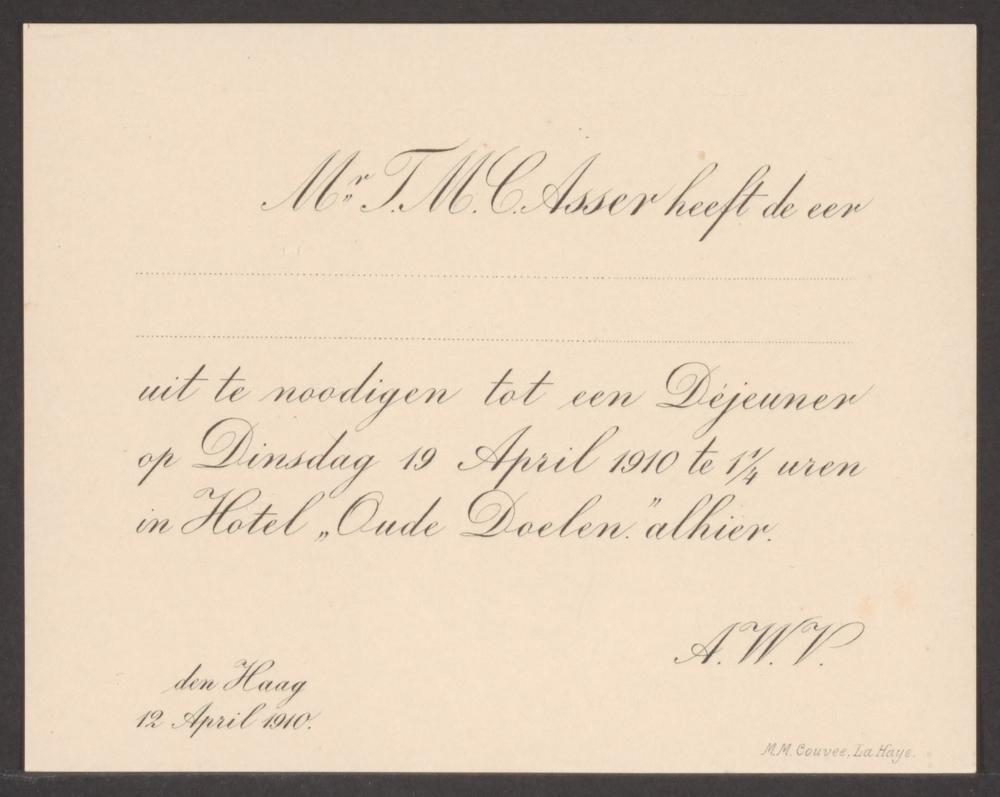 Mr. T.M.C. Asser heeft de eer
uit te noodigen tot een Déjeuner
op Dinsdag 19 April 1910 te 1 1/4 uren
in Hotel „Oude Doelen.” alhier.
A.W.V.
den Haag
12 April 1910.
M.M. Couvee, La Haye.